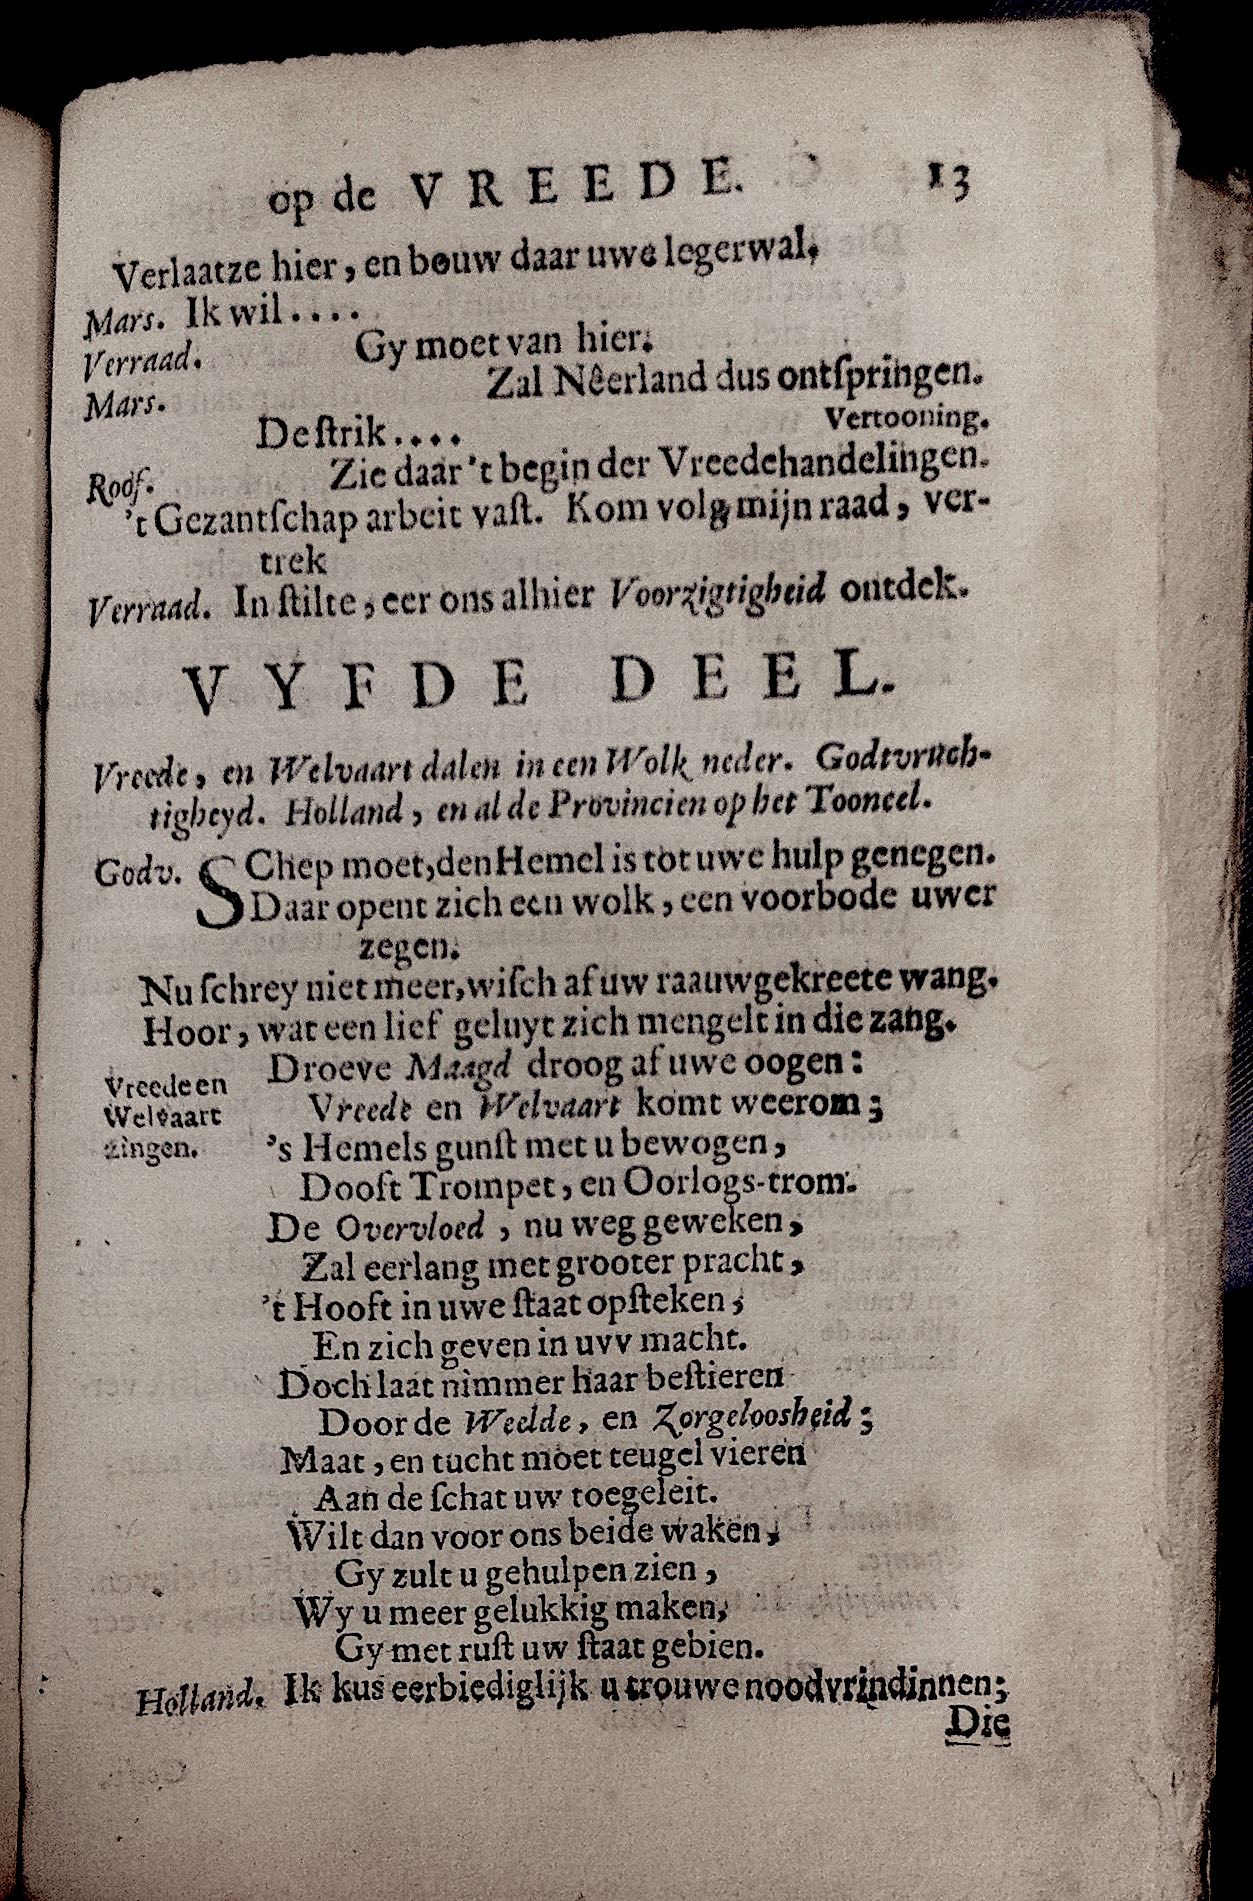 op de VREEDE. 13
Verlaatze hier, en bouw daar uwe legerwal.
Mars. Ik wil....
Verraad. Gy moet van hier.
Mars. Zal Nêerland dus ontſpringen.
De ſtrik.... Vertooning.
Roof. Zie daar 't begin der Vreedehandelingen.
't Gezantſchap arbeit vaſt. Kom volg mijn raad, ver-
trek
Verraad. In ſtilte, eer ons alhier Voorzigtigheid ontdek.
VYFDE DEEL.
Vreede, en Welvaart dalen in een Wolk neder. Godtvruch-
tigheyd. Holland, en al de Provincien op het Tooneel.
Godv. SChep moet, den Hemel is tot uwe hulp genegen.
Daar opent zich een wolk, een voorbode uwer
zegen.
Nu ſchrey niet meer, wiſch af uw raauwgekreete wang.
Hoor, wat een lief geluyt zich mengelt in die zang.
Vreede en
Welvaart
zingen.
Droeve Maagd droog af uwe oogen:
Vreede en Welvaart komt weerom;
's Hemels gunſt met u bewogen,
Dooft Trompet, en Oorlogs-trom.
De Overvloed, nu weg geweken,
Zal eerlang met grooter pracht,
't Hooft in uwe ſtaat opſteken;
En zich geven in uvv macht.
Doch laat nimmer haar beſtieren
Door de Weelde, en Zorgeloosheid;
Maat, en tucht moet teugel vieren
Aan de ſchat uw toegeleit.
Wilt dan voor ons beide waken,
Gy zult u gehulpen zien,
Wy u meer gelukkig maken,
Gy met ruſt uw ſtaat gebien.
Holland. Ik kus eerbiediglijk u trouwe noodvrindinnen;
Die